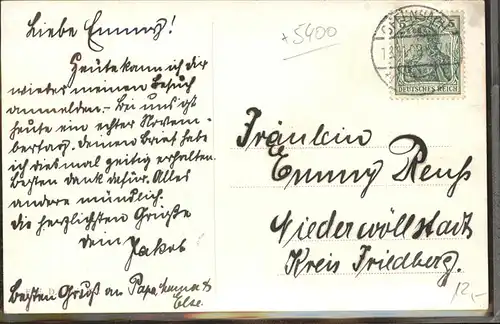 Liebe Emmy!
Heute kann ich dir
wieder meinen Besuch
anmelden.- Bei uns ist
heute ein echter Novem-
bertag. Deinen Brief habe
ich diesmal zeitig erhalten.
Besten dank dafür. Alles
andere mündlich.
die herzlichsten Grüße
dein Jakob
Besten Gruß an Papa, &
Else.
+5400
DEUTSCHES REICH
Fräulein
Emmy Reuß
Niederwöllstadt
Kreis Friedberg.
12,-